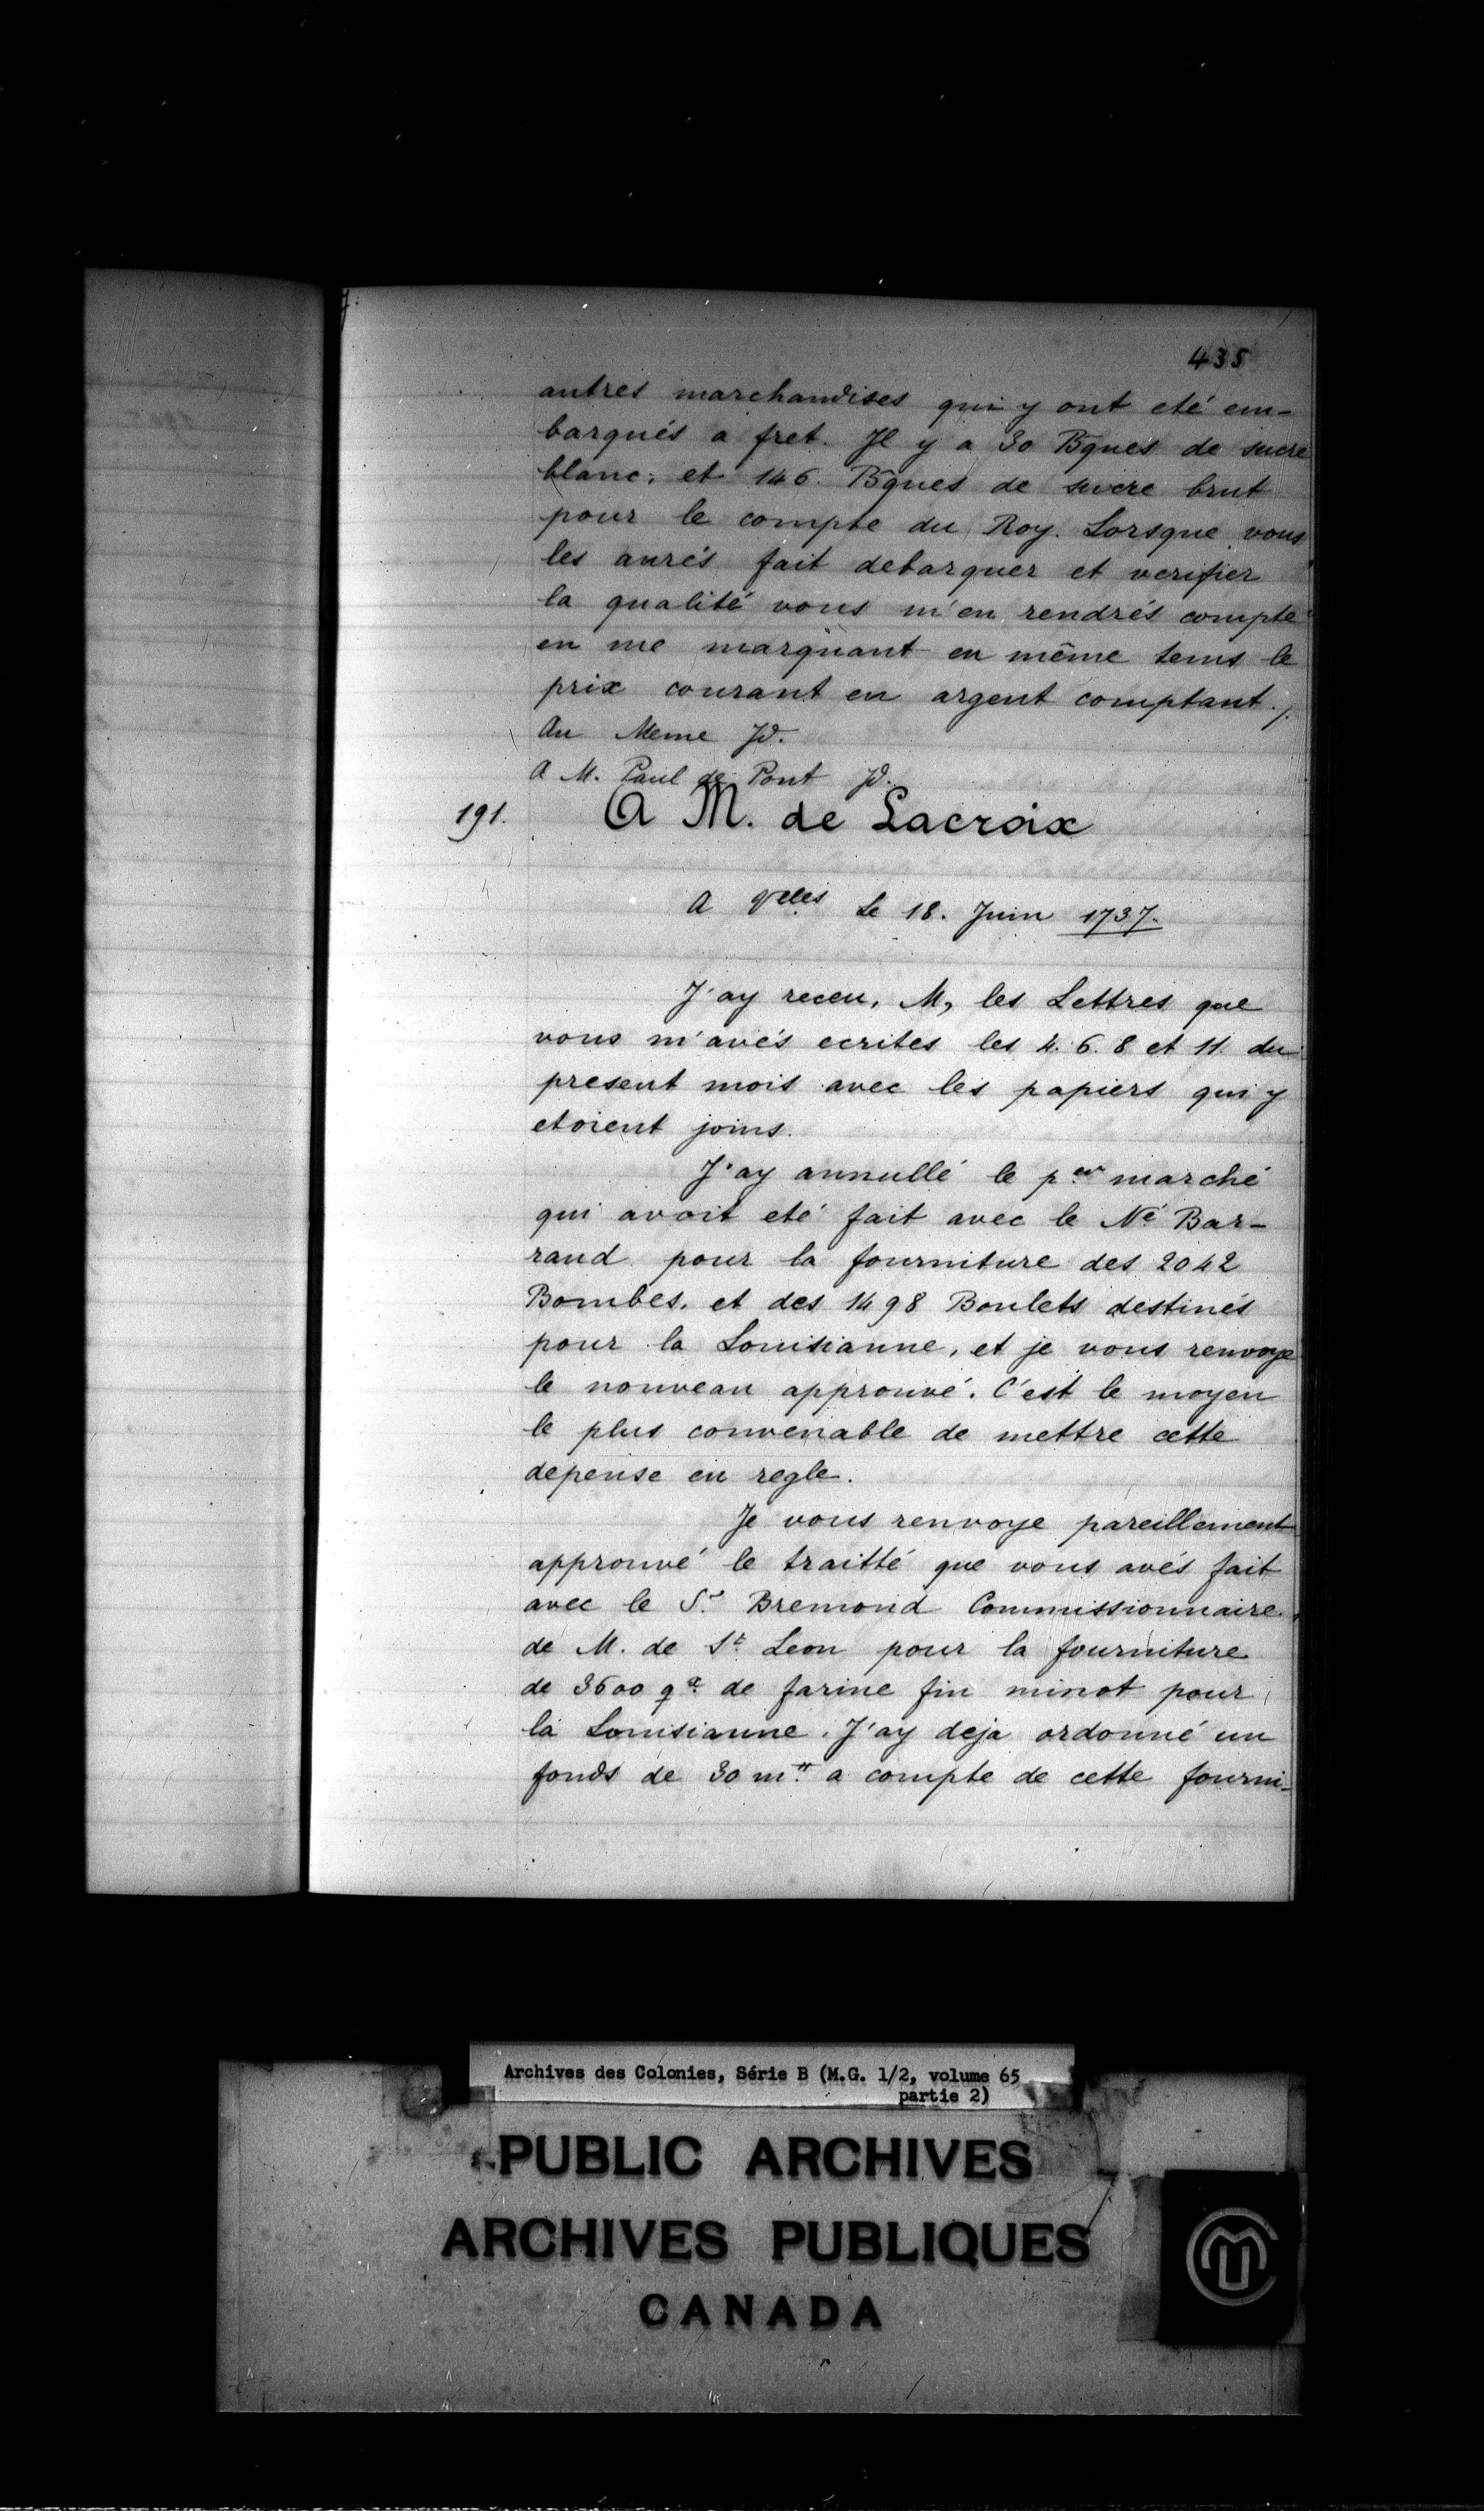 435
autres marchandises qui y ont eté em-
barqués a fret. Il y a 30 Bques de sucre
blanc, et 146. Bques de sucre brut
pour le compte du Roy. Lorsque vous
les aurés fait debarquer et verifier
la qualité vous m'en rendrés compte
en me marquant en même tems le
prix courant en argent comptant./.
Au Meme Id.
A M. Paul de Pont Id.
191. A M. de Lacroix
A Vlles Le 18. Juin 1737.
J'ay receu, M, les Lettres que
vous m'avés ecrites les 4. 6. 8 et 11. du
present mois avec les papiers qui y
etoient joins.
J'ay annullé le per marché
qui avoit eté fait avec le Né Bar-
rand pour la fourniture des 2042
Bombes, et des 1498 Boulets destinés
pour la Louisianne, et je vous renvoye
le nouveau approuvé. C'est le moyen
le plus convenable de mettre cette
depense en regle.
Je vous renvoye pareillement
approuvé le traitté que vous avés fait
avec le Sr. Bremond Commissionnaire
de M. de St. Leon pour la fourniture
de 3600 qx de farine fin minot pour
la Louisianne. J'ay deja ordonné un
fonds de 30 m.tt a compte de cette fourni-
Archives des Colonies, Série B (M.G. 1/2, volume 65
partie 2)
PUBLIC ARCHIVES
ARCHIVES PUBLIQUES
CANADA